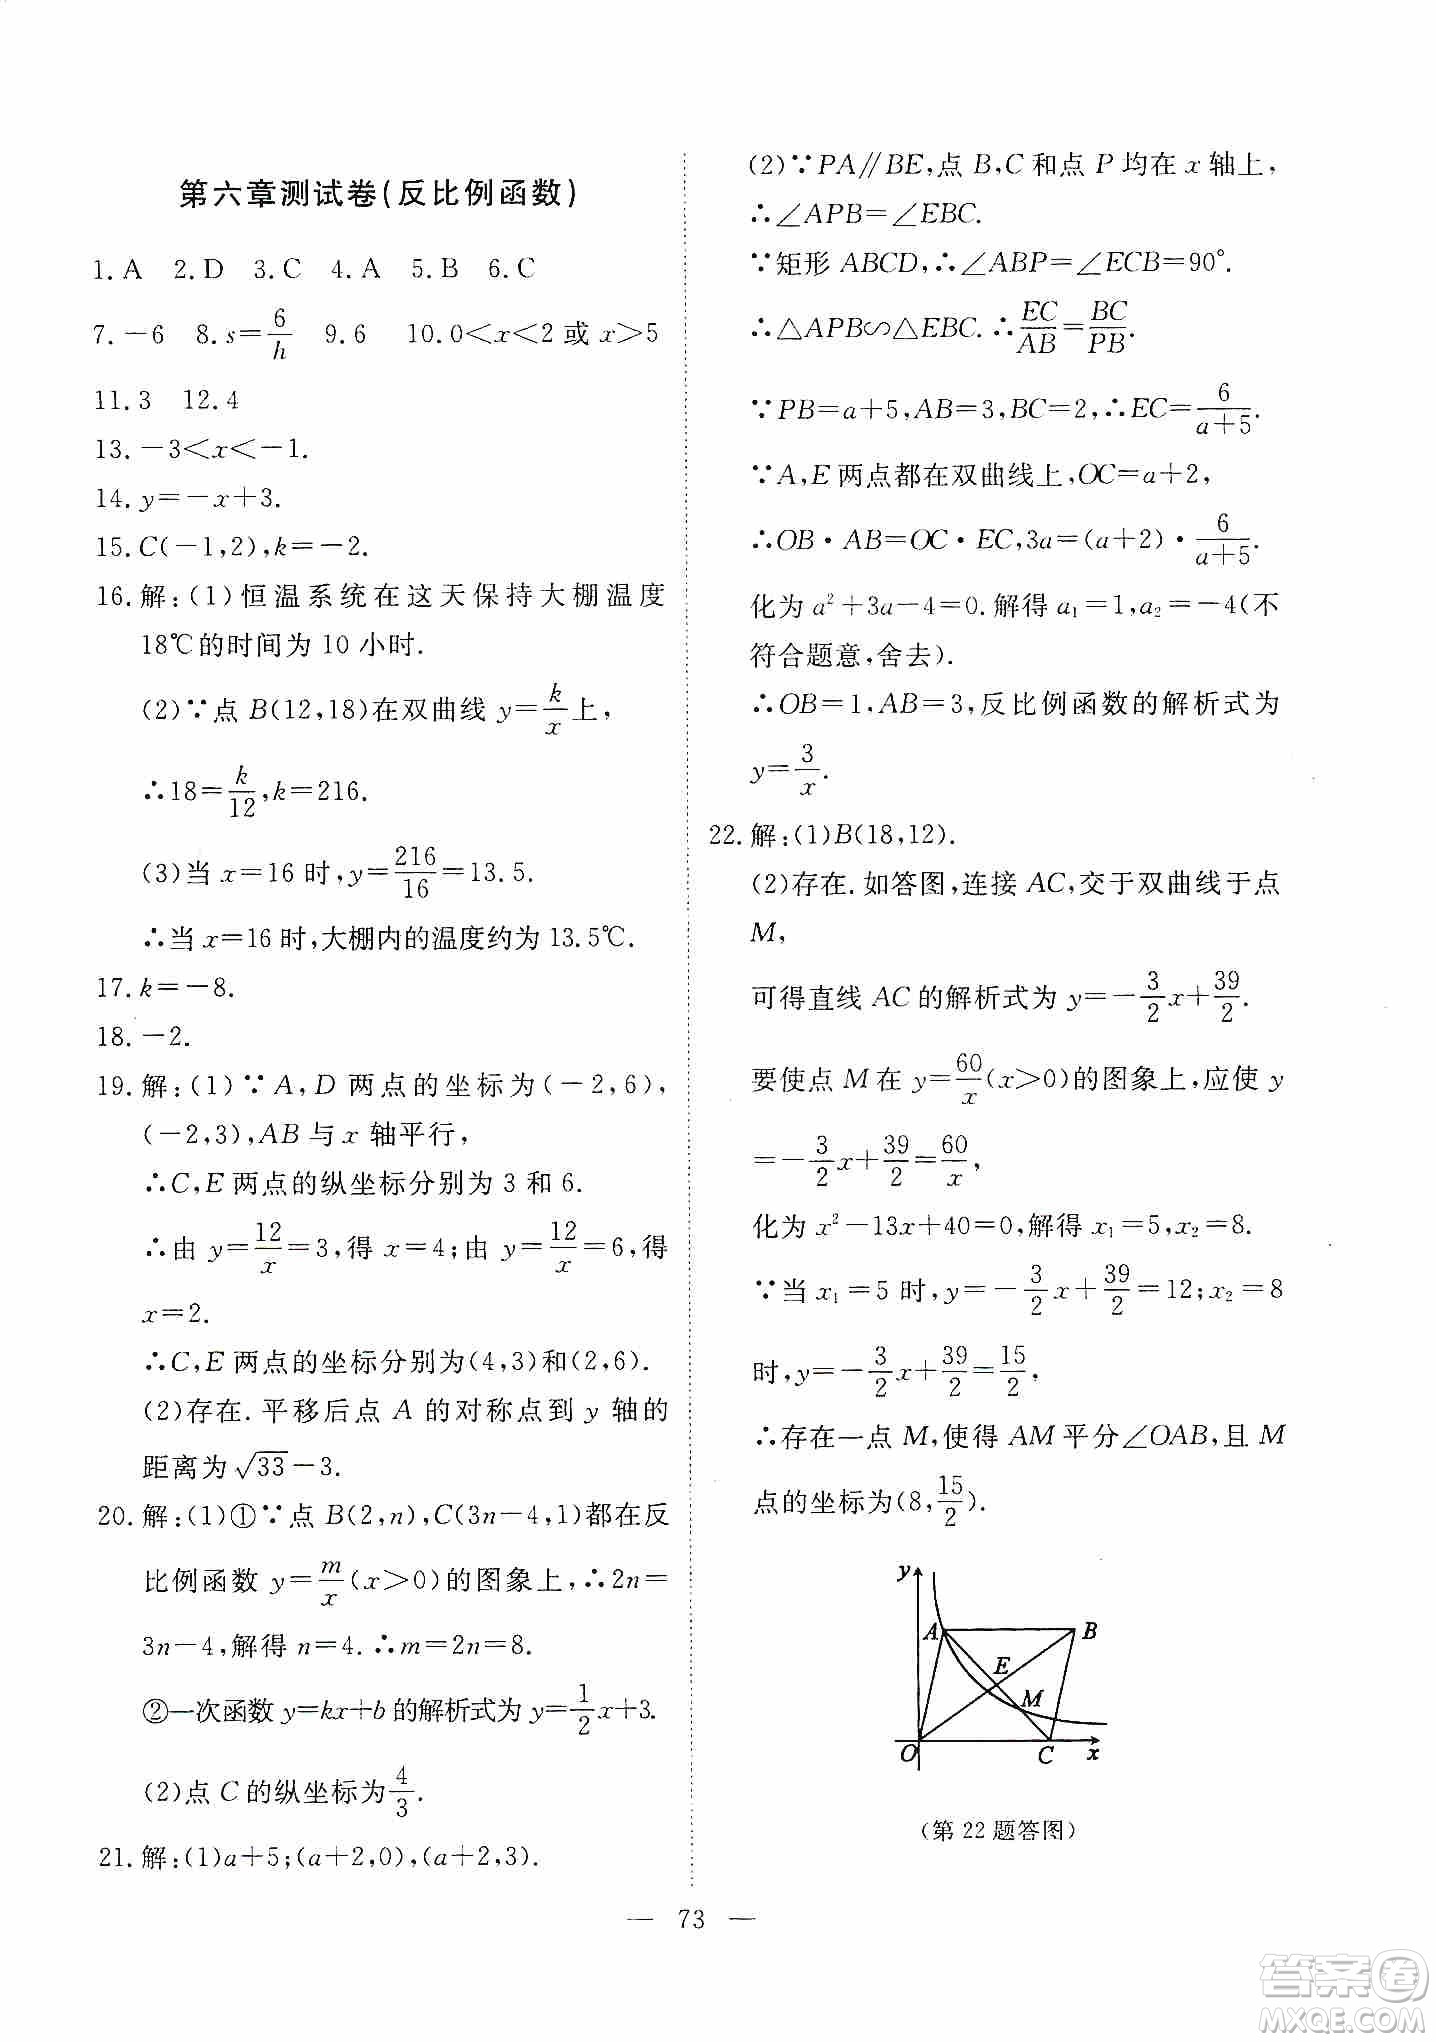 第六章测试卷(反比例函数)
1. A 2. D 3. C 4. A 5. B 6. C
7. −6 8. s=6/h 9. 6 10. 0<x<2 或 x>5
11. 3 12. 4
13. −3<x<−1.
14. y=−x+3.
15. C(−1,2),k=−2.
16. 解:(1)恒温系统在这天保持大棚温度
18℃的时间为 10 小时.
(2)∵点 B(12,18)在双曲线 y=k/x上,
∴18=k/12,k=216.
(3)当 x=16 时,y=216/16=13.5.
∴当 x=16 时,大棚内的温度约为 13.5℃.
17. k=−8.
18. −2.
19. 解:(1)∵A,D 两点的坐标为(−2,6),
(−2,3),AB 与 x 轴平行,
∴C,E 两点的纵坐标分别为 3 和 6.
∴由 y=12/x=3,得 x=4;由 y=12/x=6,得
x=2.
∴C,E 两点的坐标分别为(4,3)和(2,6).
(2)存在.平移后点 A 的对称点到 y 轴的
距离为√33−3.
20. 解:(1)①∵点 B(2,n),C(3n−4,1)都在反
比例函数 y=m/x(x>0)的图象上,∴2n=
3n−4,解得 n=4.∴m=2n=8.
②一次函数 y=kx+b 的解析式为 y=1/2x+3.
(2)点 C 的纵坐标为4/3.
21. 解:(1)a+5;(a+2,0),(a+2,3).
(2)∵PA∥BE,点 B,C 和点 P 均在 x 轴上,
∴∠APB=∠EBC.
∵矩形 ABCD,∴∠ABP=∠ECB=90°.
∴△APB∽△EBC.∴EC/AB=BC/PB.
∵PB=a+5,AB=3,BC=2,∴EC=6/(a+5).
∵A,E 两点都在双曲线上,OC=a+2,
∴OB·AB=OC·EC,3a=(a+2)·6/(a+5).
化为 a²+3a−4=0.解得 a₁=1,a₂=−4(不
符合题意,舍去).
∴OB=1,AB=3,反比例函数的解析式为
y=3/x.
22. 解:(1)B(18,12).
(2)存在.如答图,连接 AC,交于双曲线于点
M,
可得直线 AC 的解析式为 y=−3/2x+39/2.
要使点 M 在 y=60/x(x>0)的图象上,应使 y
=−3/2x+39/2=60/x,
化为 x²−13x+40=0,解得 x₁=5,x₂=8.
∵当 x₁=5 时,y=−3/2x+39/2=12;x₂=8
时,y=−3/2x+39/2=15/2.
∴存在一点 M,使得 AM 平分∠OAB,且 M
点的坐标为(8,15/2).
y
A B
E
M
O C x
(第 22 题答图)
— 73 —
答案圈
MXQE.COM